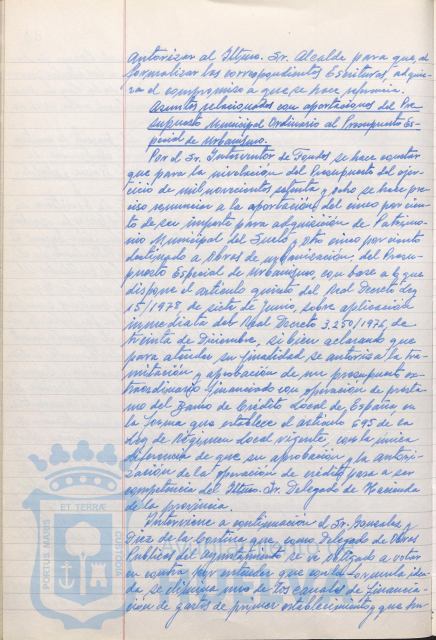 Autorizar al Iltmo. Sr. Alcalde para que, al
formalizar las correspondientes Escrituras, adquie-
ra el compromiso a que se hace referencia.
Asuntos relacionados con aportaciones del Pre-
supuesto Municipal Ordinario al Presupuesto Es-
pecial de Urbanismo.
Por el Sr. Interventor de Fondos se hace constar
que para la nivelación del Presupuesto del ejer-
cicio de mil novecientos setenta y ocho se hace pre-
ciso renunciar a la aportación del cinco por cien-
to de su importe para adquisición de Patrimo-
nio Municipal del Suelo y otro cinco por ciento
destinado a Obras de urbanización, del Presu-
puesto Especial de Urbanismo, con base a lo que
dispone el artículo quinto del Real Decreto Ley
15/1978 de siete de Junio, sobre aplicación
inmediata del Real Decreto 3.250/1976, de
treinta de Diciembre, si bien aclarando que
para atender su finalidad se autoriza la tra-
mitación y aprobación de un presupuesto ex-
traordinario financiado con operación de présta-
mo del Banco de Crédito Local de España, en
la forma que establece el artículo 695 de la
Ley de Régimen Local vigente, con la única
diferencia de que su aprobación y la autori-
zación de la operación de crédito pasa a ser
competencia del Iltmo. Sr. Delegado de Hacienda
de la provincia.
Interviene a continuación el Sr. González y
Díez de la Cortina que, como Delegado de Obras
Públicas del Ayuntamiento se ve obligado a votar
en contra por entender que con la fórmula idea-
da se elimina uno de los canales de financia-
ción de gastos de primer establecimiento y que sin
PORTUS MARIS
ET TERRA
CUSTODIA